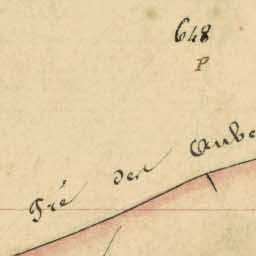 648
P
Pré des Aube